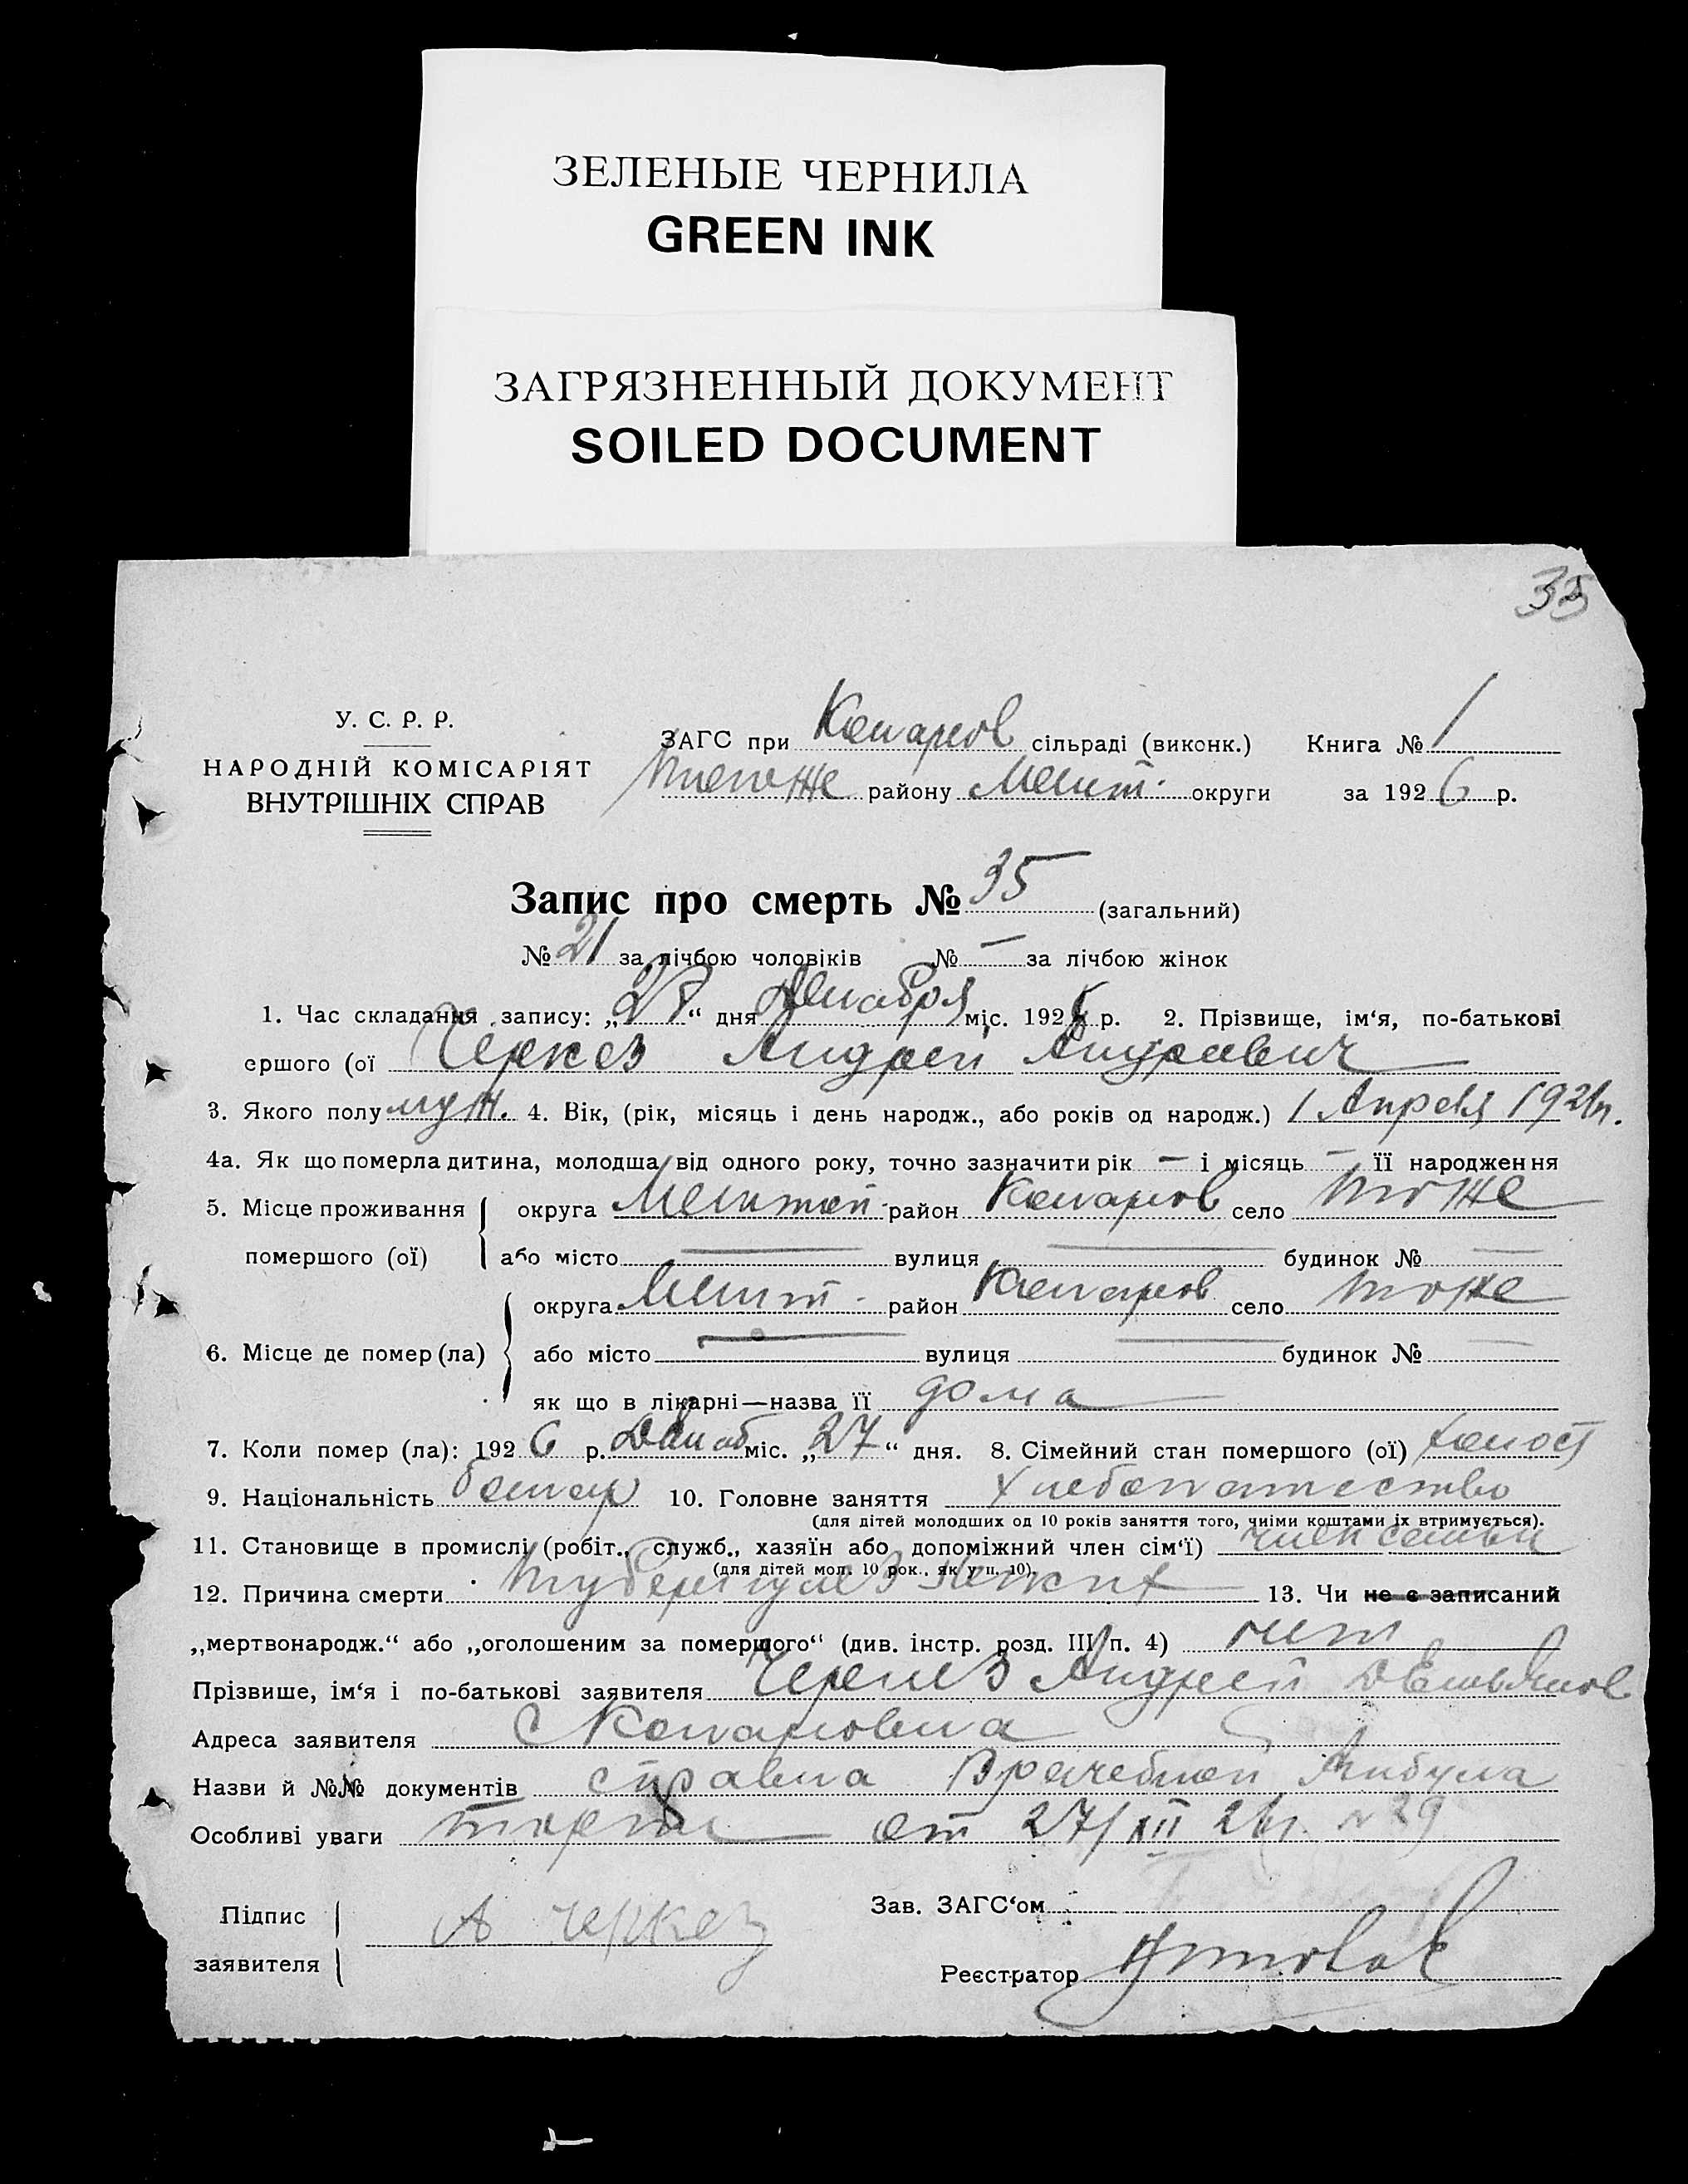 ЗЕЛЕНЫЕ ЧЕРНИЛА
GREEN INK
ЗАГРЯЗНЕННЫЙ ДОКУМЕНТ
SOILED DOCUMENT
35
У. С. Р. Р.
НАРОДНІЙ КОМІСАРІЯТ
ВНУТРІШНІХ СПРАВ
ЗАГС при сільраді (виконк.) Книга № 1
району Мелит. округи за 1926 р.
Запис про смерть № 35 (загальний)
№ 21 за лічбою чоловіків № — за лічбою жінок
1. Час складання запису: „ “ дня Декабря міс. 192 р. 2. Прізвище, ім‘я, по-батькові
ершого (ої Черкез Андрей Андреевич
3. Якого полу муж. 4. Вік, (рік, місяць і день народж., або років од народж.) 1 Апреля
4а. Як що померла дитина, молодша від одного року, точно зазначити рік — і місяць — її народження
5. Місце проживання округа район село тоже
помершого (ої) або місто — вулиця — будинок № —
округа Мелит. район село тоже
6. Місце де помер (ла) або місто — вулиця — будинок № —
як що в лікарні—назва її дома
7. Коли помер (ла): 1926 р. Декаб міс. „27“ дня. 8. Сімейний стан помершого (ої) холост
9. Національність болгар 10. Головне заняття Хлебопашество
(для дітей молодших од 10 років заняття того, чиїми коштами їх втримується).
11. Становище в промислі (робіт., служб., хазяїн або допоміжний член сім‘ї) член семьи
(для дітей мол. 10 рок., як у п. 10).
12. Причина смерти Туберкулез легких 13. Чи не є записаний
„мертвонародж.“ або „оголошеним за помершого“ (див. інстр. розд. III п. 4) нет
Прізвище, ім‘я і по-батькові заявителя Черкез Андрей
Адреса заявителя С
Назви й №№ документів справка Врачебной Амбула
Особливі уваги тории от 27/XII 26 г. № 29
Підпис А Черкез Зав. ЗАГС‘ом
заявителя Реєстратор